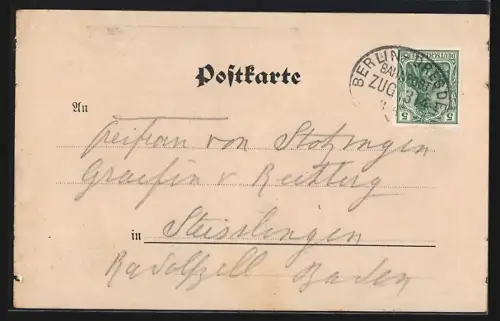 Postkarte
BERLIN-DRESDEN
BAHNPOST
ZUG 3
DEUTSCHES REICH
5 5
An
Freifrau von Stotzingen
Graefin v Reitberg
in Steisslingen
Radolfzell Baden